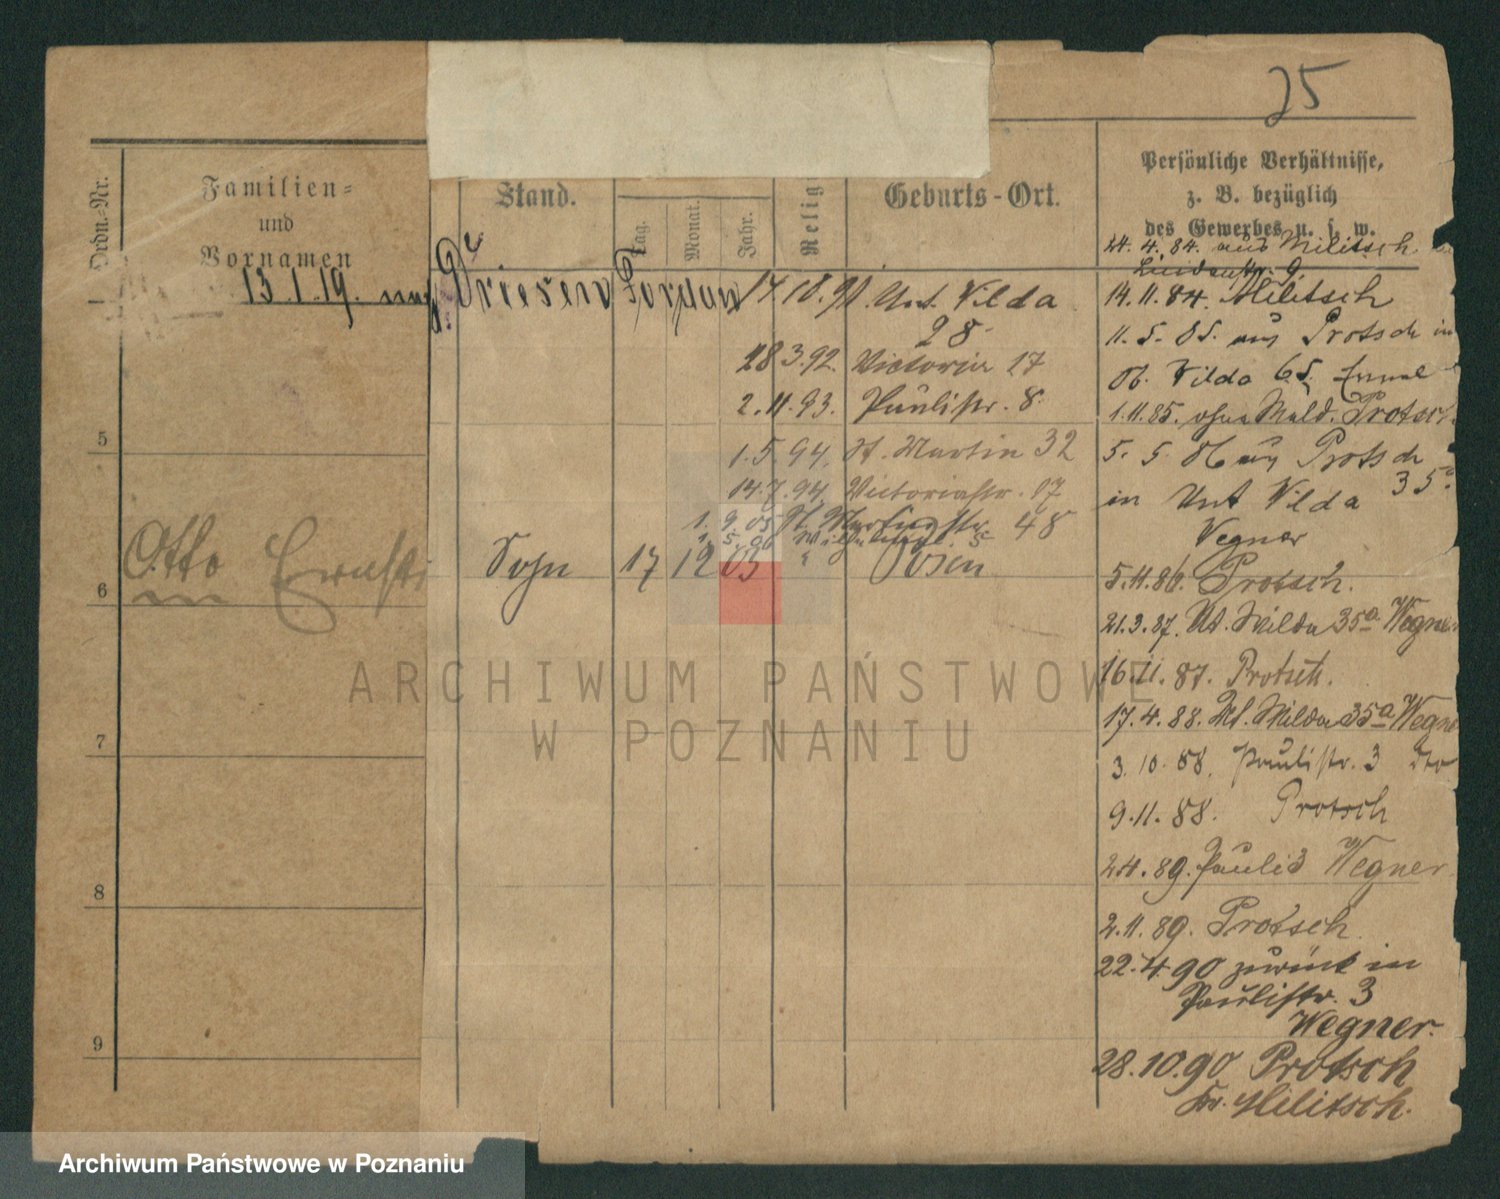 25
Ordn.-Nr.
Familien-
und
Vornamen
Stand.
Tag.
Monat.
Jahr.
Relig
Geburts-Ort.
Persönliche Verhältnisse,
z. B. bezüglich
des Gewerbes u. s. w.
1
13.1.19. nach Driesen Jordan
17.10.91. Unt. Wilda
28.
28 3.92. Victoria 17
2.11.93. Paulistr. 8.
5
1.5.94. St. Martin 32
14.7.94. Victoriastr. 17
1. 9. 05 St. Martinstr. 48
Otto Ernst Sohn 17 12 03 " Posen
6
7
8
9
24. 4. 84. aus Militsch in
Lindenstr. 9.
14.11.84. Militsch
11. 5. 85. aus Protsch in
Ob. Wilda 65.
1.11.85. ohne Meld. Protsch
5. 5. 86 aus Protsch
in Unt Wilda 35a
Wegner
5.11.86. Protsch.
21.3.87. Ut. Wilda 35a Wegner
16.11.87. Protsch.
17.4.88. Ut. Wilda 35a Wegne
3.10.88. Paulistr. 3 dto
9.11.88. Protsch
2.4.89. Pauli 3 Wegner
2.11.89. Protsch
22.4.90 zurück in
Paulistr. 3
Wegner.
28.10.90 Protsch
Kr. Militsch.
ARCHIWUM PAŃSTWOWE
W POZNANIU
Archiwum Państwowe w Poznaniu